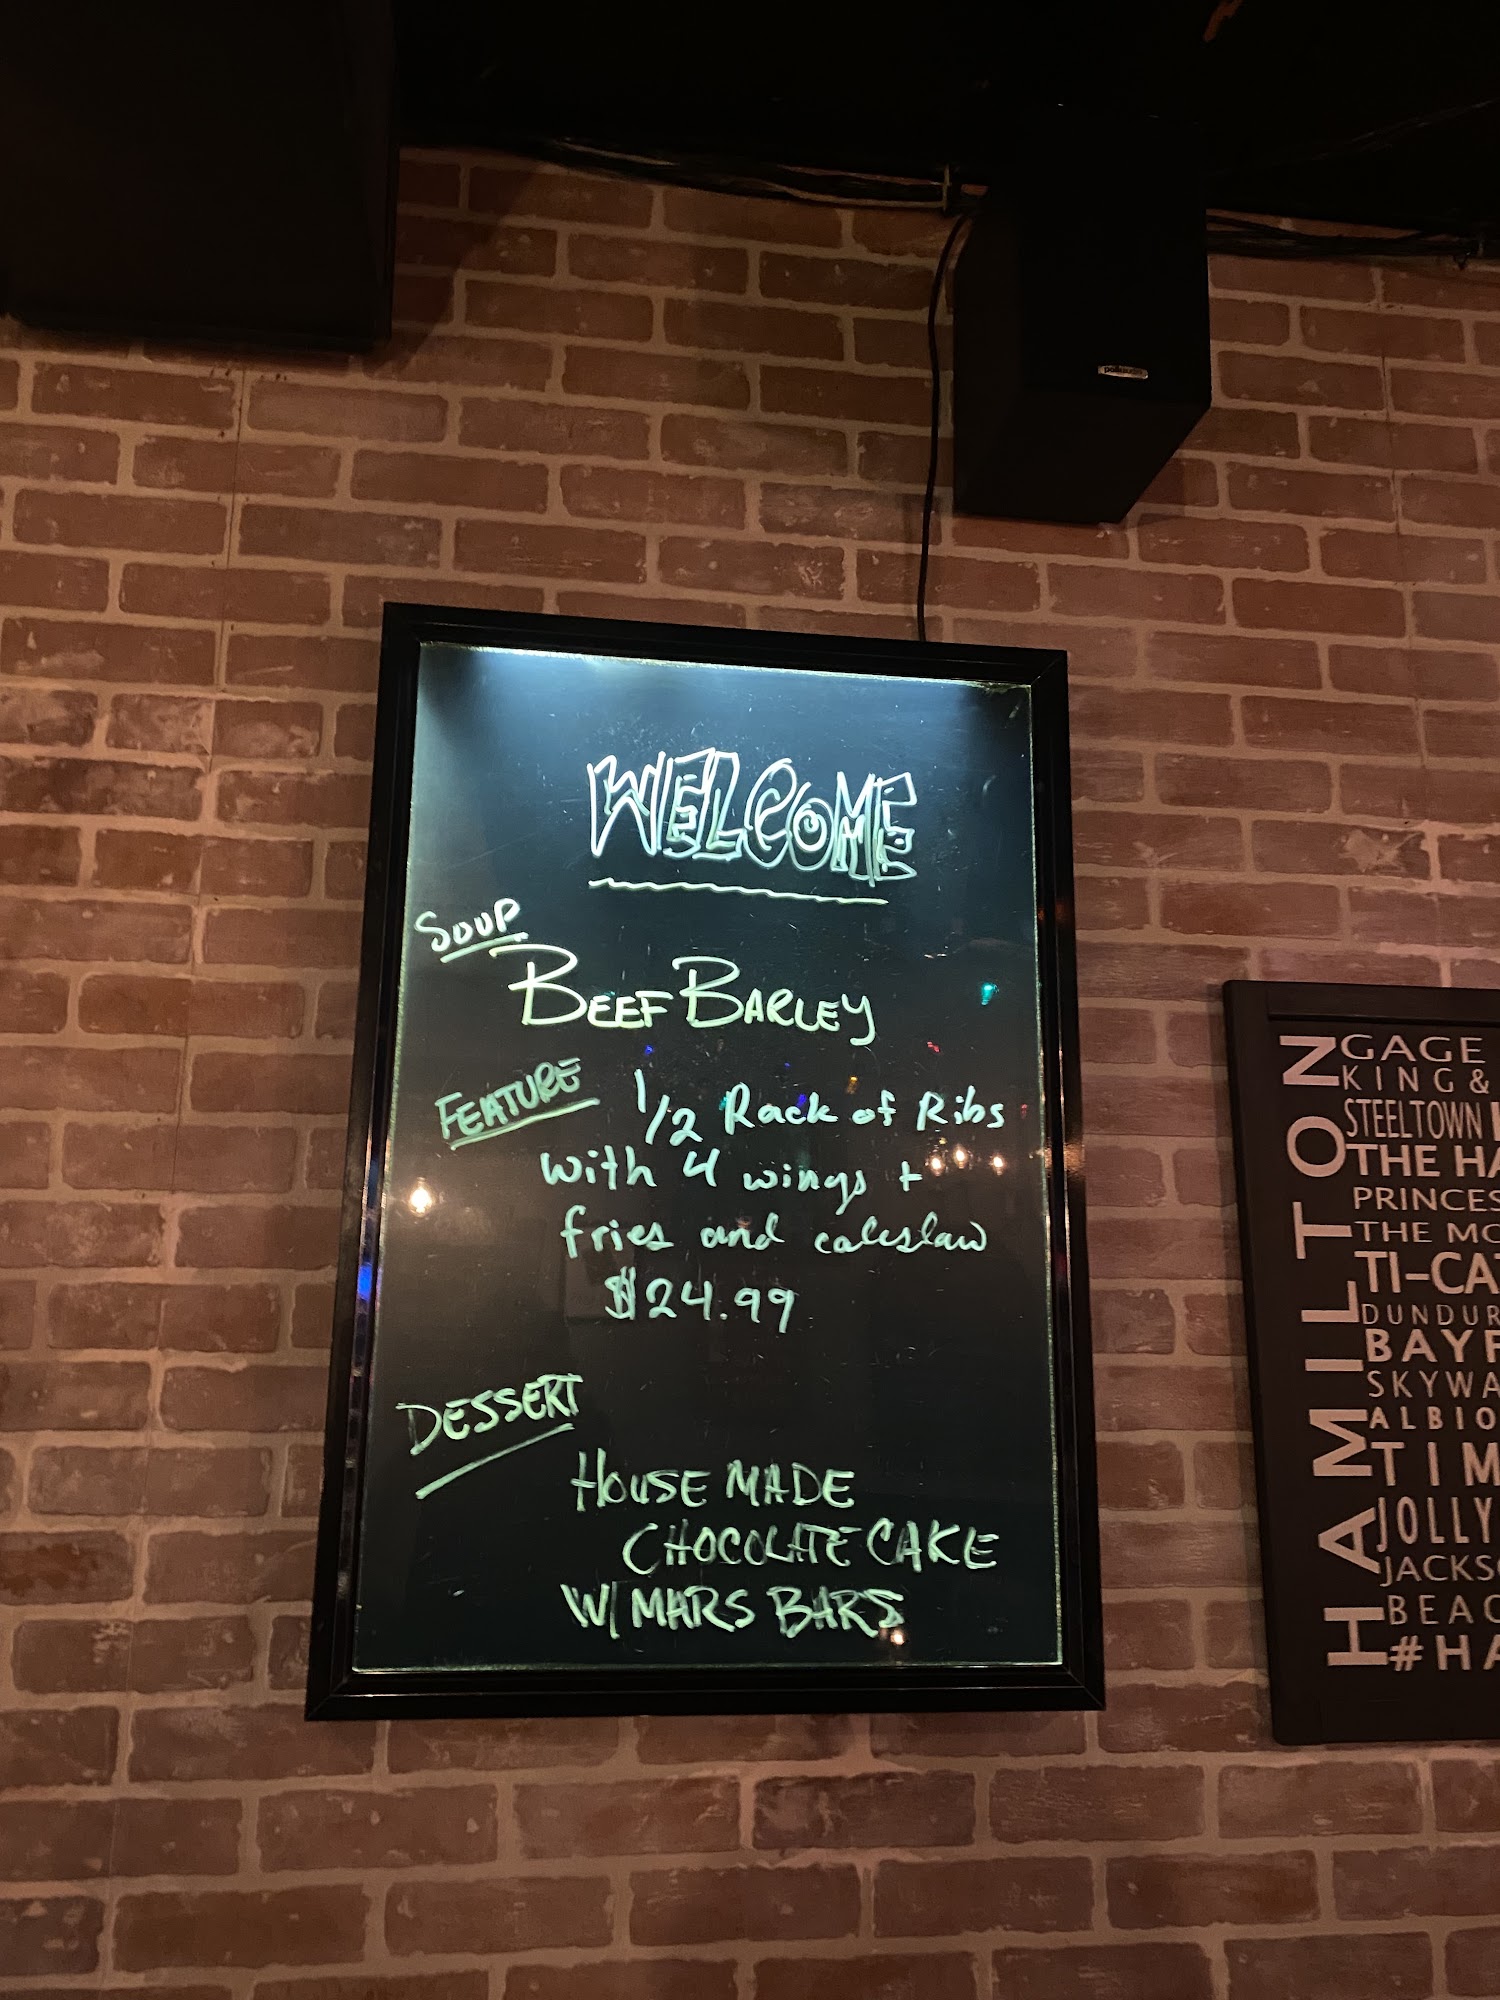 WELCOME
SOUP
BEEF BARLEY
FEATURE
1/2 Rack of Ribs
with 4 wings +
fries and coleslaw
$24.99
DESSERT
HOUSE MADE
CHOCOLATE CAKE
W/ MARS BARS
polkaudio
HAMILTON
GAGE
KING &
STEELTOWN
THE HA
PRINCES
THE MO
TI-CAT
DUNDUR
BAYF
SKYWA
ALBIO
TIM
JOLLY
JACKSO
BEAC
#HA